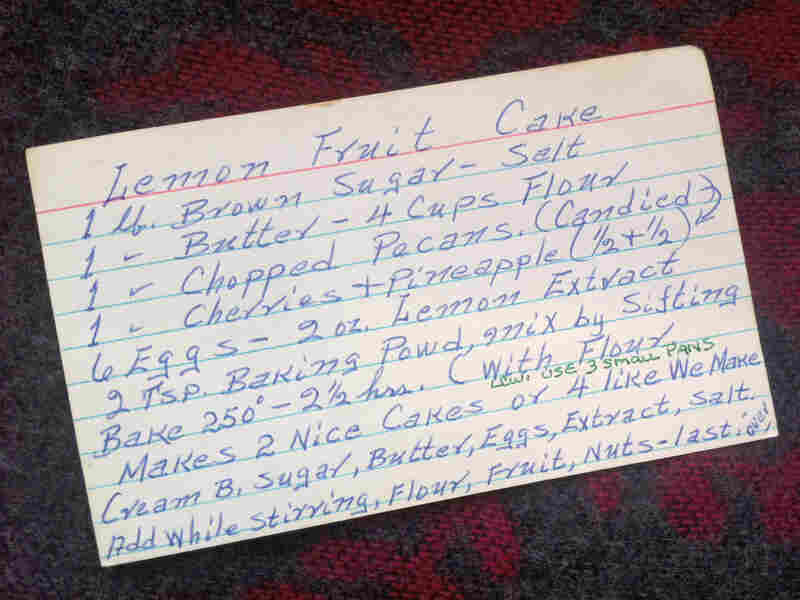 Lemon Fruit Cake
1 lb. Brown Sugar - Salt
1 " Butter - 4 Cups Flour
1 " Chopped Pecans. (Candied)
1 " Cherries + Pineapple (1/2 + 1/2)
6 Eggs - 2 oz. Lemon Extract
2 Tsp. Baking Powd, mix by Sifting
Bake 250° - 2 1/2 hrs. (With Flour
USE 3 SMALL PANS
Makes 2 Nice Cakes or 4 like We Make
Cream B. Sugar, Butter, Eggs, Extract, Salt.
Add While Stirring, Flour, Fruit, Nuts - last.
over